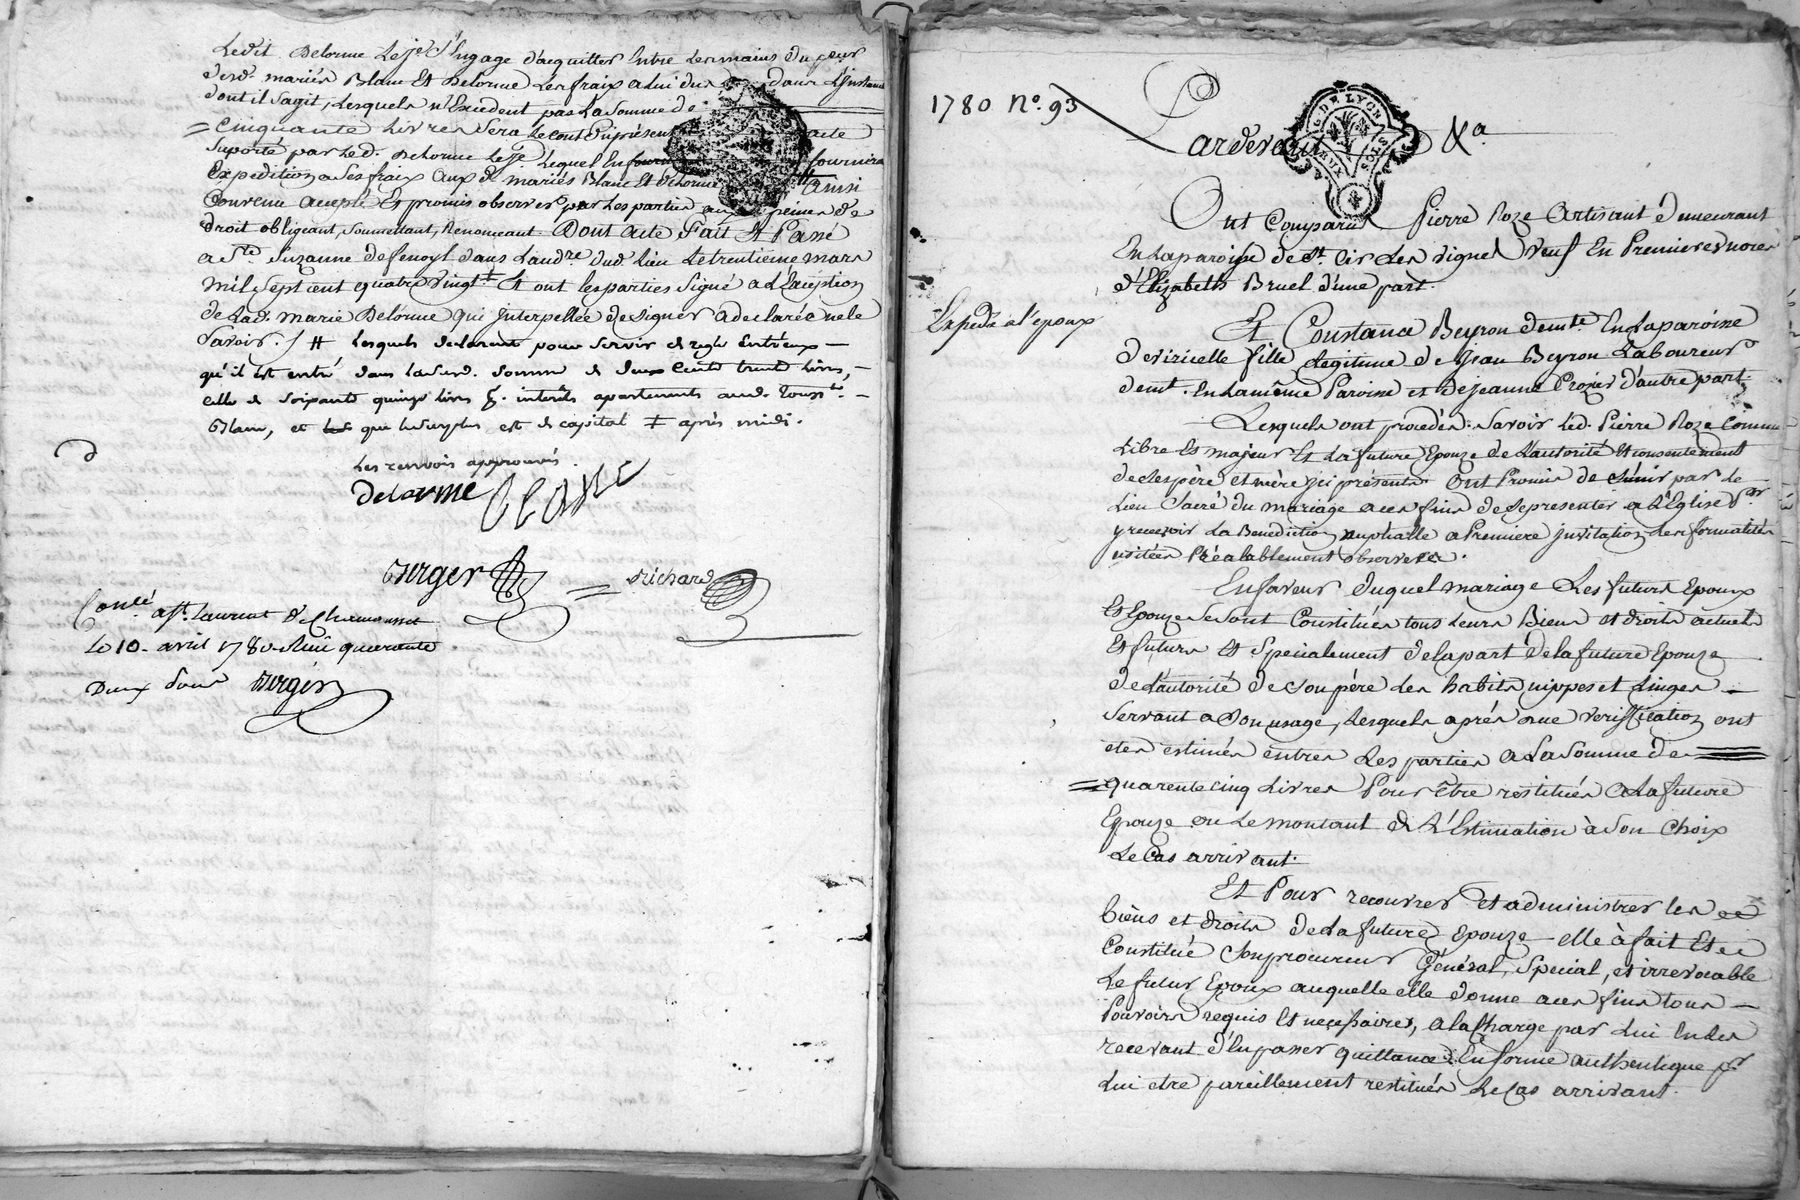 Ledit Delorme Le je. s'Engage d'acquitter Entre Les mains du
desd. mariés Blanc Et Delorme Les fraix a Lui dus dans L'Instance
dont il s'agit, Lesquels n'Excedent pas La somme de
= Cinquante Livres sera Le cout du présent acte
suporté par Led. Delorme Le je. Lequel En fournira
Expedition a ses fraix aux d. mariés Blanc Et Delorme Ainsi
Convenu accepté Et promis observer par Les parties aux peines de
droit obligeant, Soumettant, Renonceant. Dont acte Fait Et Passé
a Ste. Suzanne de fenoyl dans Laud.re dud. Lieu Le trentieme mars
mil sept cent quatre vingt Et ont Les parties Signé a L'Exception
de Lad. marie Delorme qui Interpellée de signer a declaré ne le
savoir. / # Lesquels declarent pour servir de regle Entr'eux —
qu'il est entré dans Lasusd. somme de deux Cents trente Livres, —
celle de soixante quinze livres p. interets apartenants aud.
Blanc, et que le surplus est de capital ‡ après midi.
Les renvois approuvés
delorme blanc
Berger = Richard
Conlé. a St. Laurent de Chamousset
Le 10. avril 1780. Reçu quarente
Deux sous Berger
1780 No. 93
Pardevant &a
G. DE LYON
DEUX SOLS
Ont Comparu Pierre Roze Artisant demeurant
En La paroisse de St. Cir Les vignes veuf En Premieres noces
d'Elizabeth Bruel d'une part.
Expedié a l'epoux
Et Constance Beyron demte. En La paroisse
de viricelle fille Legitime de Jean Beyron Laboureur
demt. En La même Paroisse et de jeanne Crozier d'autre part
Lesquels ont procédés. Savoir Led. Pierre Roze Comme
Libre Et majeur Et La future Epouze de L'autorité Et consentement
de ses père et mère ici présents Ont Promis de s'unir par Le
Lien Sacré du mariage a ces fins de se presenter a L'Eglise Pr.
y recevoir La Benediction nuptialle a Premiere Invitation Les formalités
usitées Préalablement observées.
En faveur duquel mariage Les futurs Epoux
Et Epouze se sont Constitués tous Leurs Biens et droits actuels
Et futurs Et Specialement de La part de La future Epouze
de L'autorité de Son père Les habits nippes et Linges —
servant a Son usage, Lesquels aprés une Veriffication ont
etés estimés entres Les parties a La Somme de
= quarente cinq Livres Pour être restitués a La future
Epouze ou Le montant de L'Estimation à Son Choix
Le Cas arrivant.
Et Pour recouvrer et administrer Les
biens et droits de La future Epouze elle à fait Et
Constitué Son procureur Général, Special, et irrevocable
Le futur Epoux auquelle elle donne a ces fins tous —
Pouvoirs requis Et necessaires, a La Charge par Lui En Les
recevant d'En passer quittances En forme authentique pr.
Lui etre pareillement restitués Le Cas arrivant.